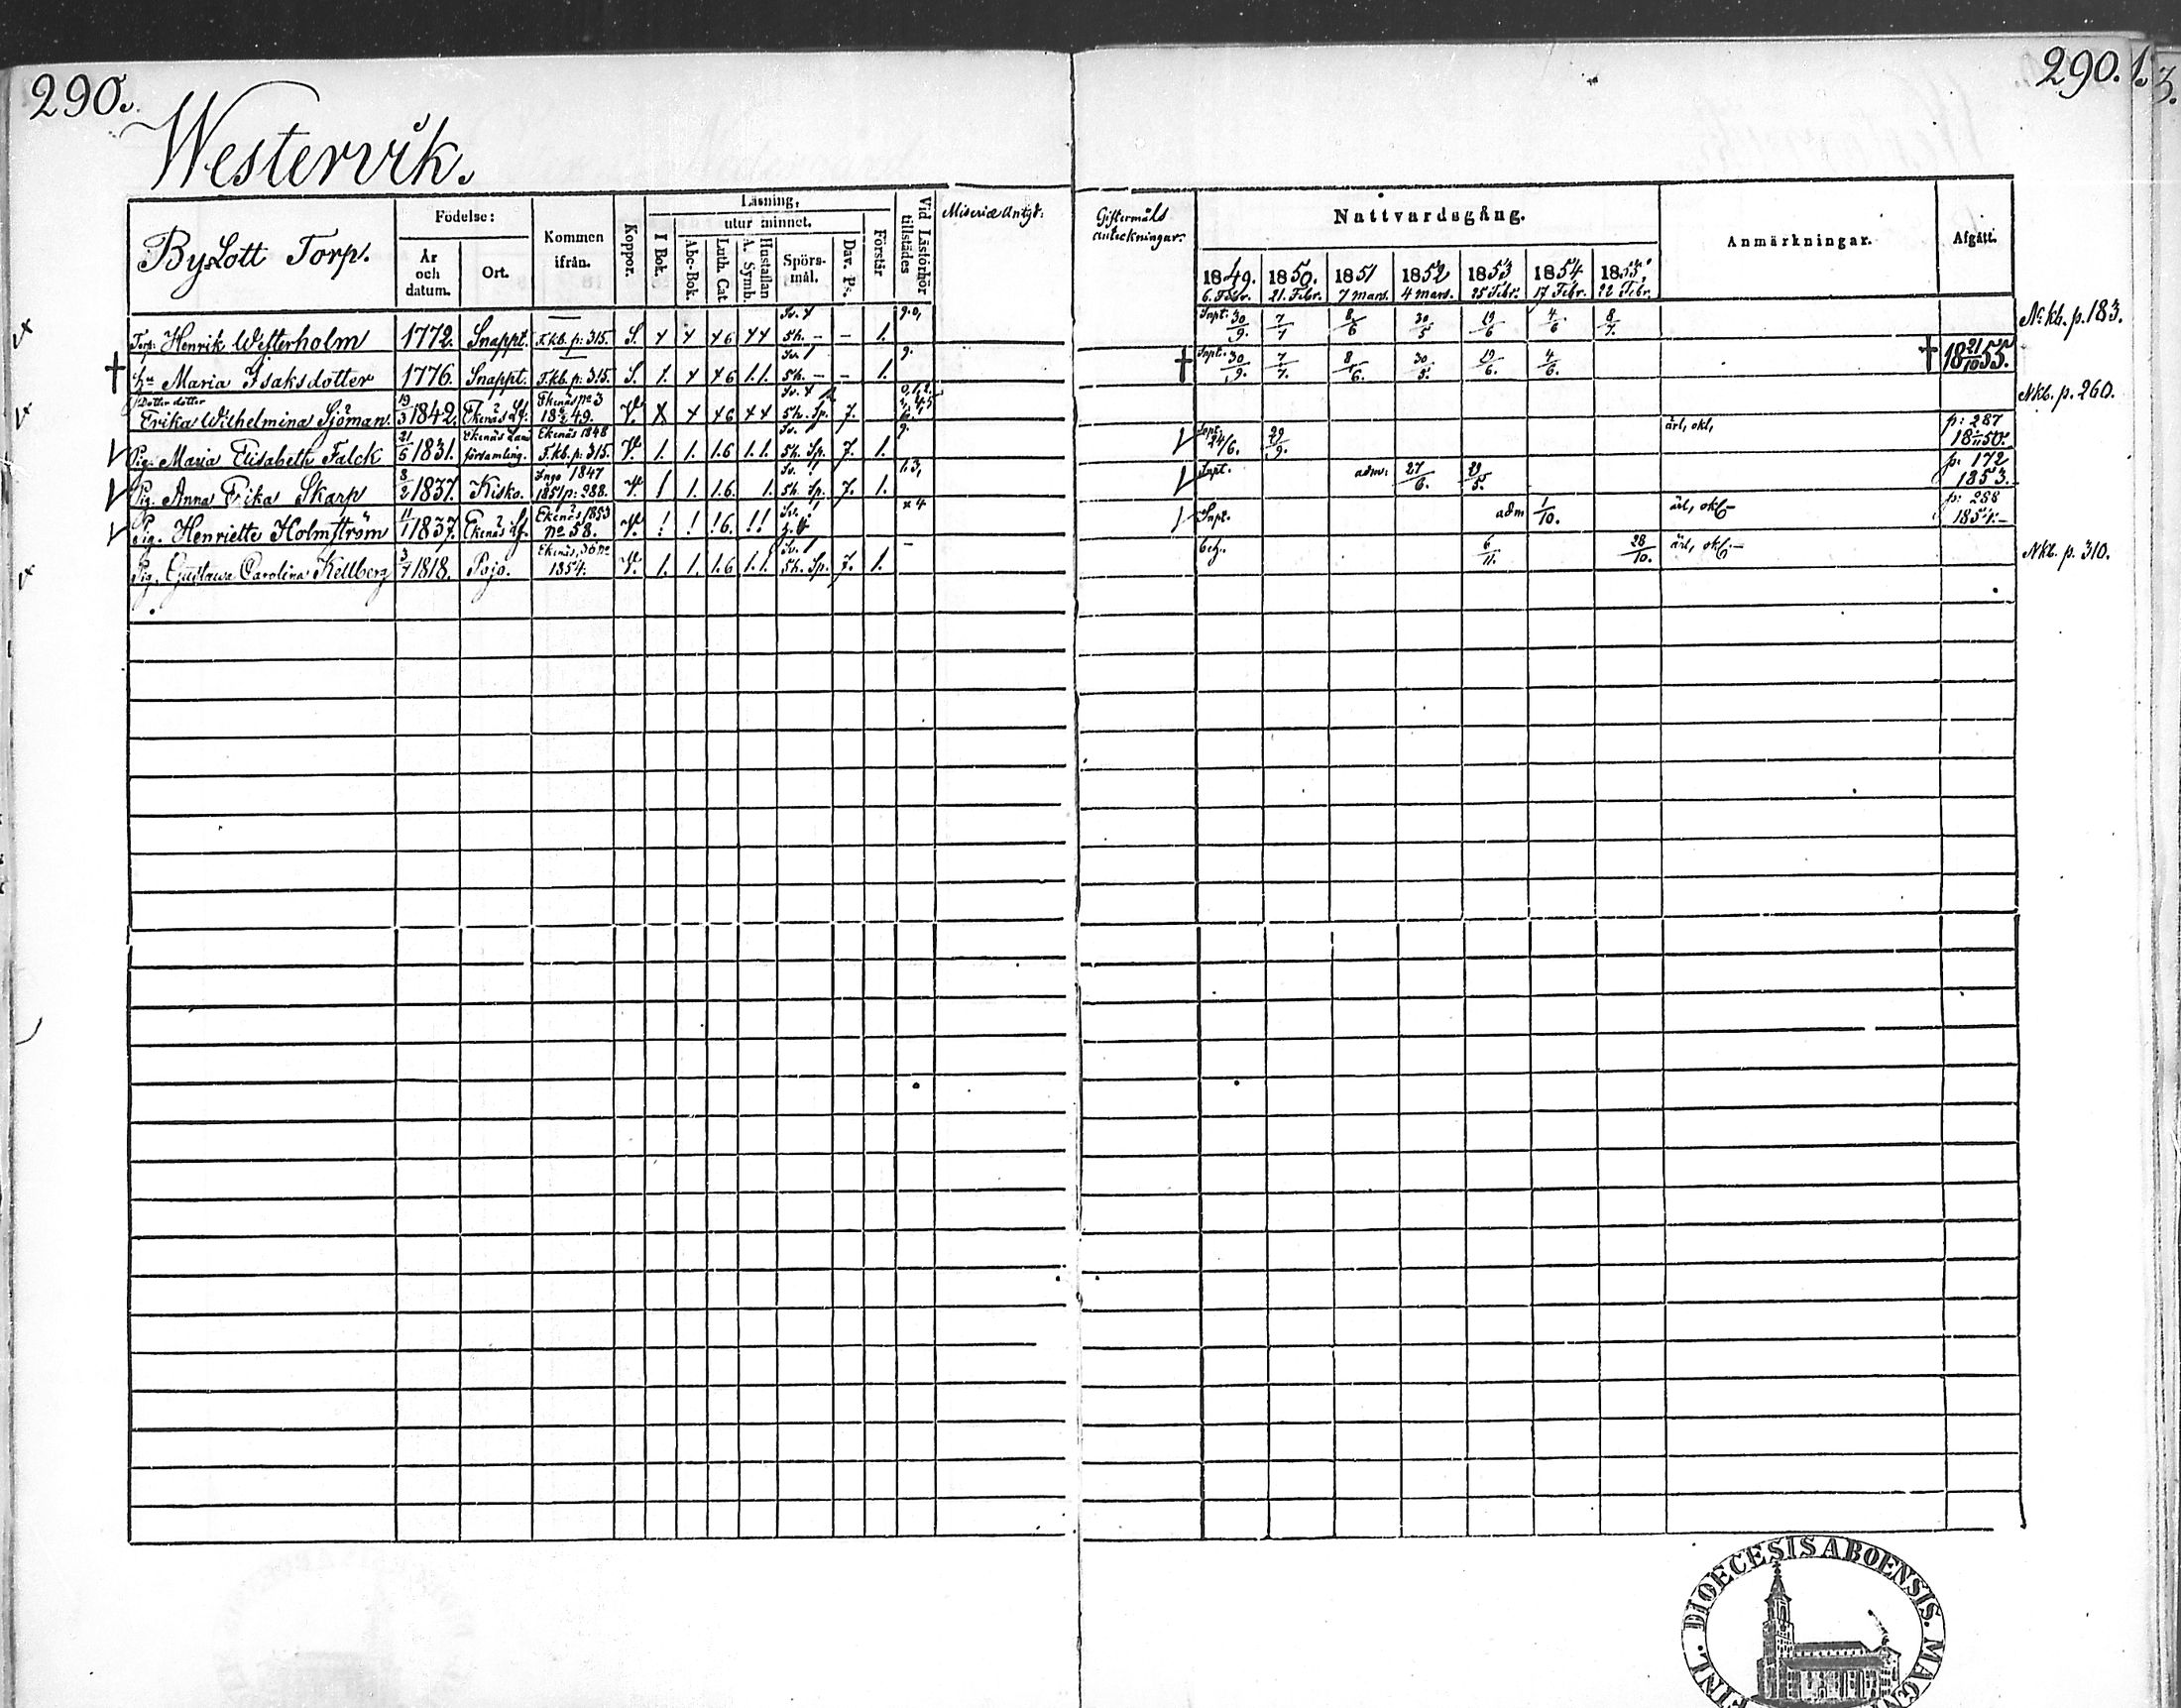 290.
290.
1.
3.
Westervik.
By Lott Torp.
Födelse:
År och datum.
Ort.
Kommen ifrån.
Koppor.
Läsning,
utur minnet.
I Bok.
Abc-Bok.
Luth. Cat.
A. Symb. Hustaflan
Spörsmål.
Dav. Ps.
Förstår
Vid Läsförhör tillstädes
Giftermåls anteckningar.
Nattvardsgång.
1849. 6. Febr.
1850. 21. Febr.
1851 7 mars.
1852 4 mars.
1853 25 Febr.
1854 17 Febr.
1855. 22 Febr.
Anmärkningar.
Afgått.
Torp. Henrik Westerholm 1772. Snappt. F.kb. p: 315. S. 5h. – – 1. 30/9. 7/7 8/6 30/5 19/6 4/6 8/7. Nkb. p. 183.
† hu Maria Isaksdotter 1776. Snappt. F.kb. p: 315. S. 5h. – – 1. † 30/9. 7/7. 8/6. 30/5. 19/6. 4/6. † 18 21/10 55.
Dotter dotter
Erika Wilhelmina Sjöman. 19/3 1842. Ekenäs Lf. Ekenäs no 3 1849. V. 5h. Sp. 7. Nkb. p. 260.
Pig. Maria Elisabeth Falck 21/6 1831. Ekenäs Lands församling. Ekenäs 1848 F.kb. p: 315. V. 1. 1. 1.6 1.1. 5h. Sp. 7. 1. 24/6. 29/9. ärl, okl, p: 287 1850.
Pig. Anna Erika Skarp 8/2 1837. Kisko. Ingo 1847 1851 p: 288. V. 1 1. 1.6. 1. 5h. Sp. 7. 1. 1.3, Inpt. adm: 27/6. 29/5. p: 172 1853.
Pig. Henriette Holmström 11/1 1837. Ekenäs Lf. Ekenäs 1853 no 58. V. Inpt. adm 1/10. ärl, okl– p: 288 1854.–
Pig. Gustava Carolina Kellberg 3/7 1818. Pojo. Ekenäs, 1854. V. 1. 1. 1.6 1.1. 5h. Sp. 7. 1. – 6/11. 28/10. ärl, okl– Nkb. p. 310.
FINL. DIOECESIS ABOENSIS. MAGN